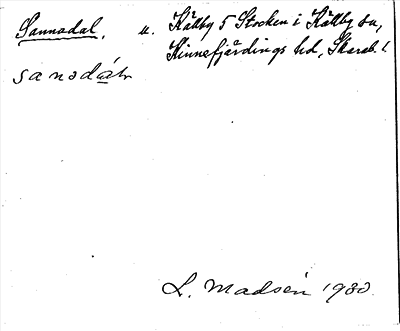 Sannadal. u. Källby 5 Stocken i Källby sn,
Kinnefjärdings hd, Skarab. l.
sanədɑ́ḷn
L. Madsén 1930